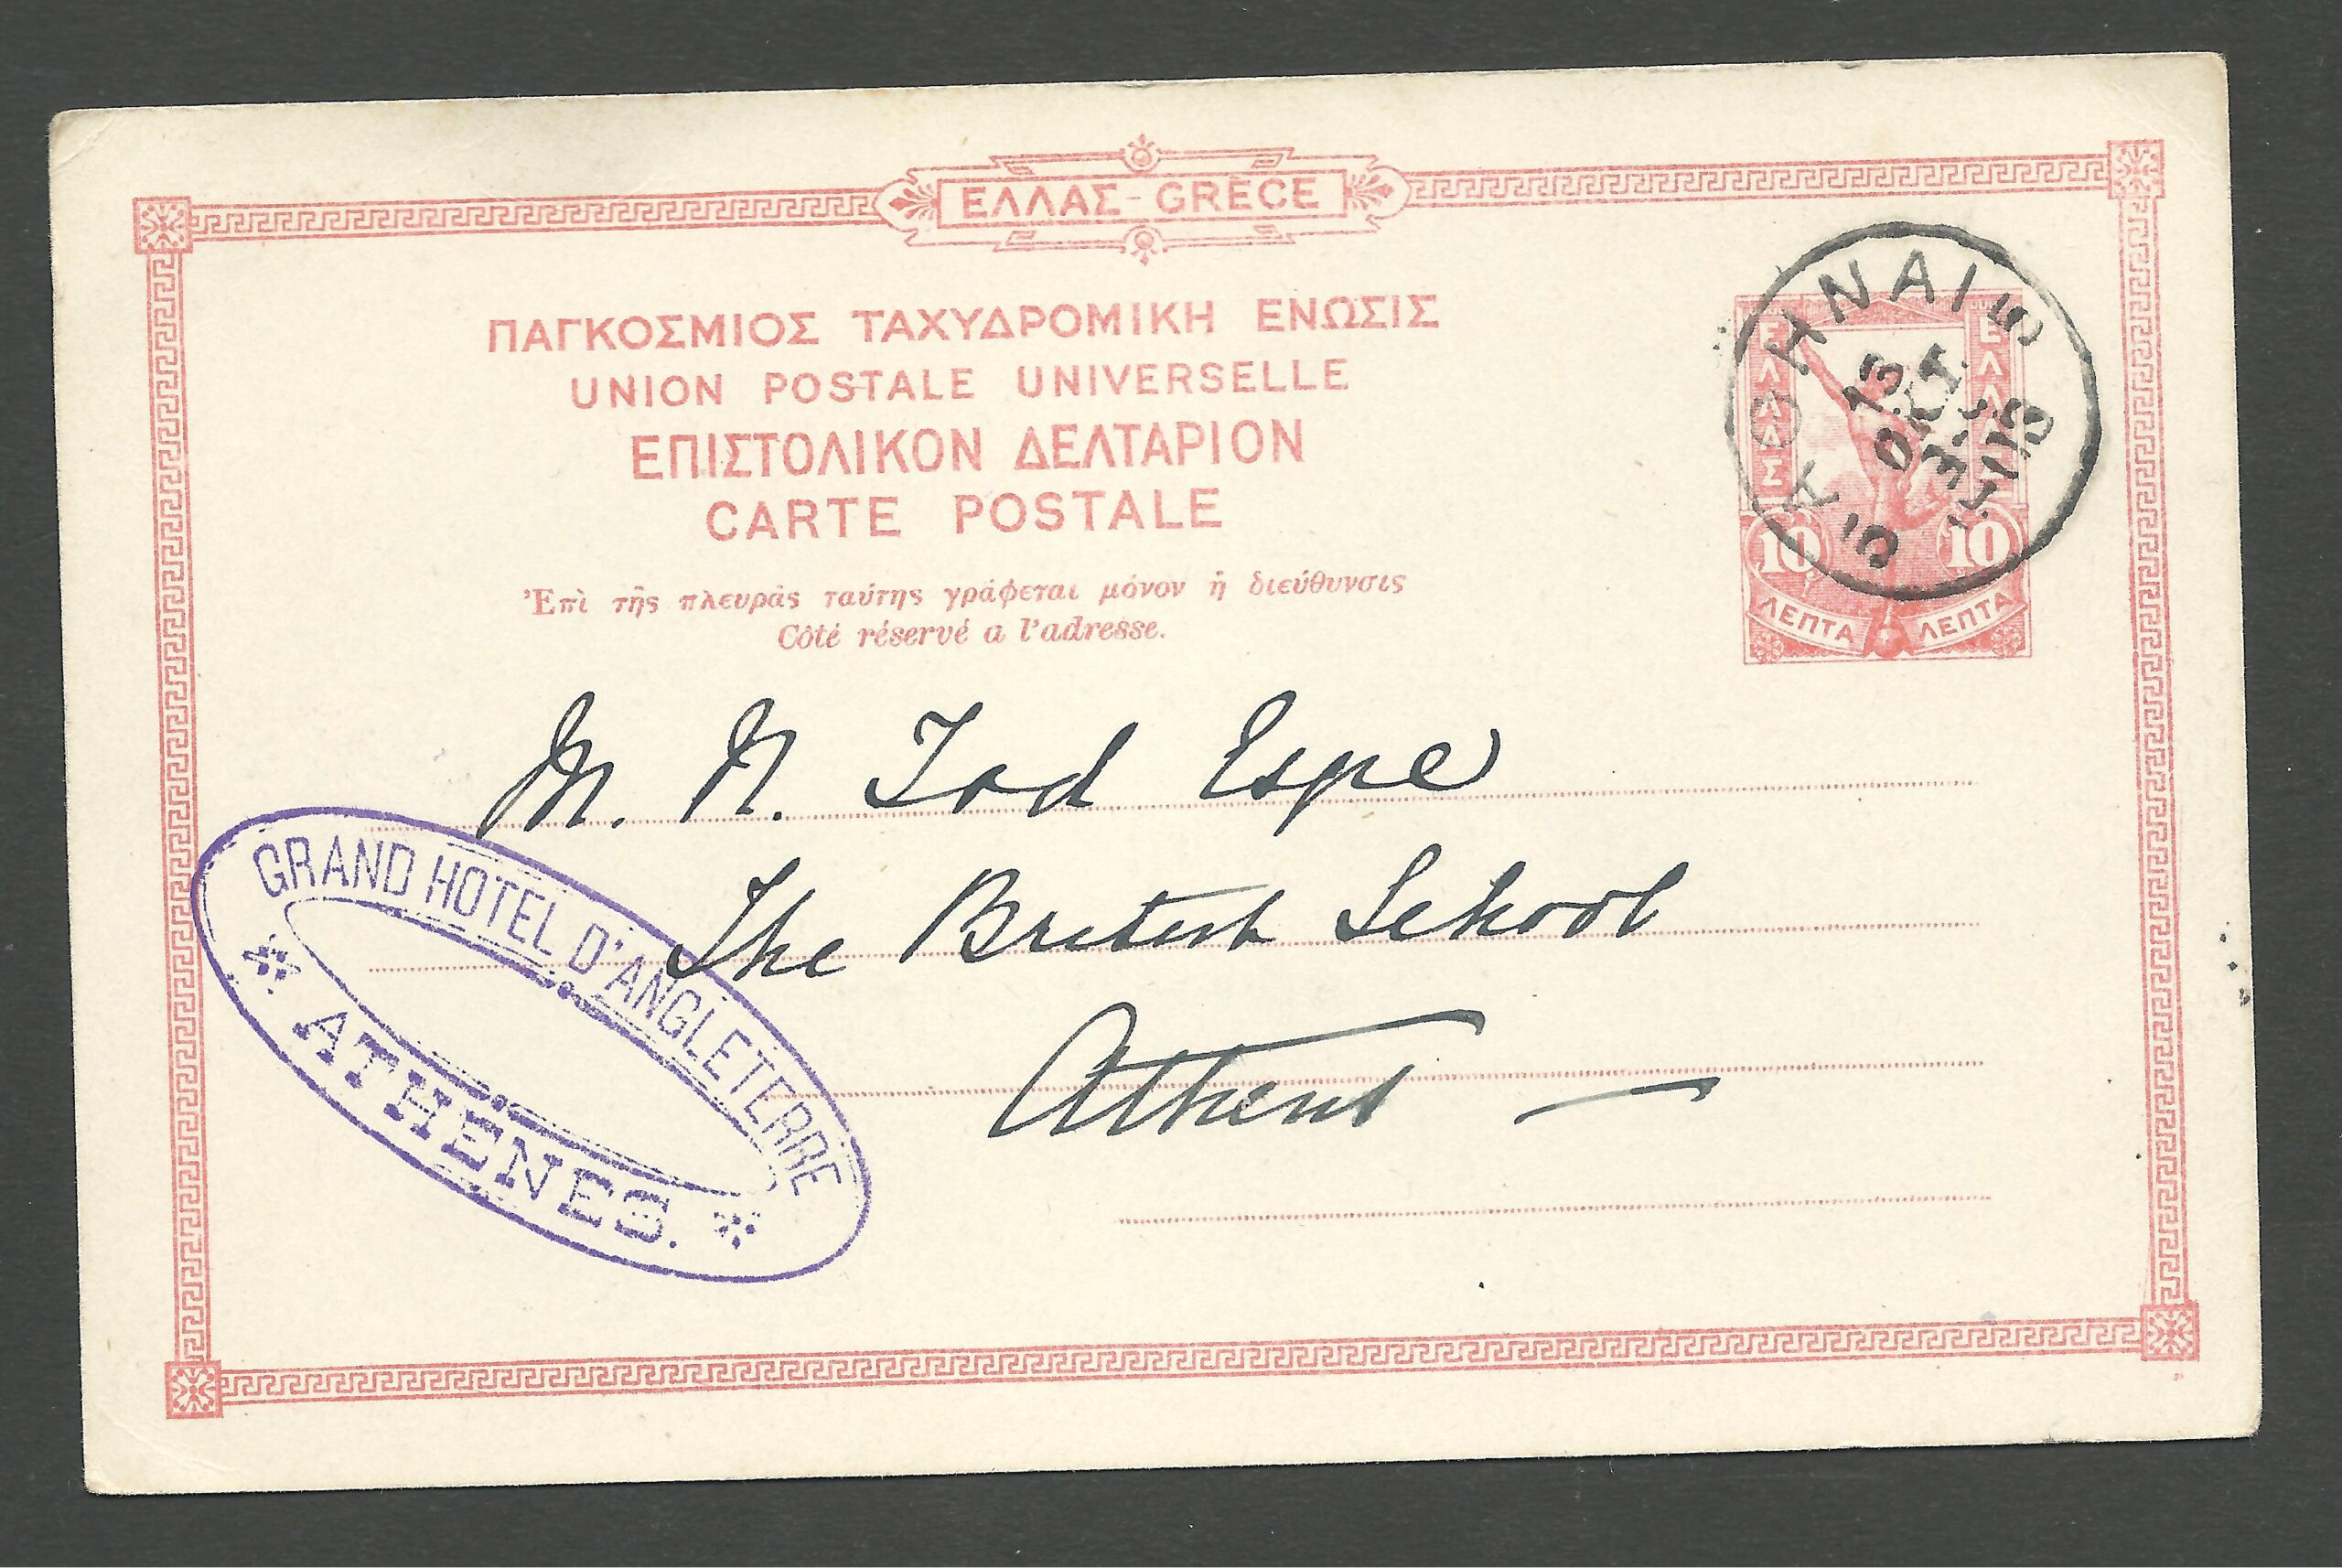 ΕΛΛΑΣ - GRÈCE
ΠΑΓΚΟΣΜΙΟΣ ΤΑΧΥΔΡΟΜΙΚΗ ΕΝΩΣΙΣ
UNION POSTALE UNIVERSELLE
ΕΠΙΣΤΟΛΙΚΟΝ ΔΕΛΤΑΡΙΟΝ
CARTE POSTALE
Ἐπὶ τῆς πλευρᾶς ταύτης γράφεται μόνον ἡ διεύθυνσις
Côté réservé a l'adresse.
ΕΛΛΑΣ
ΕΛΛΑΣ
10 10
ΛΕΠΤΑ ΛΕΠΤΑ
ΑΘΗΝΑΙ 5
13
ΟΚΤ.
M. N. Tod Esqe
The British School
Athens —
GRAND HOTEL D'ANGLETERRE
ATHÈNES.